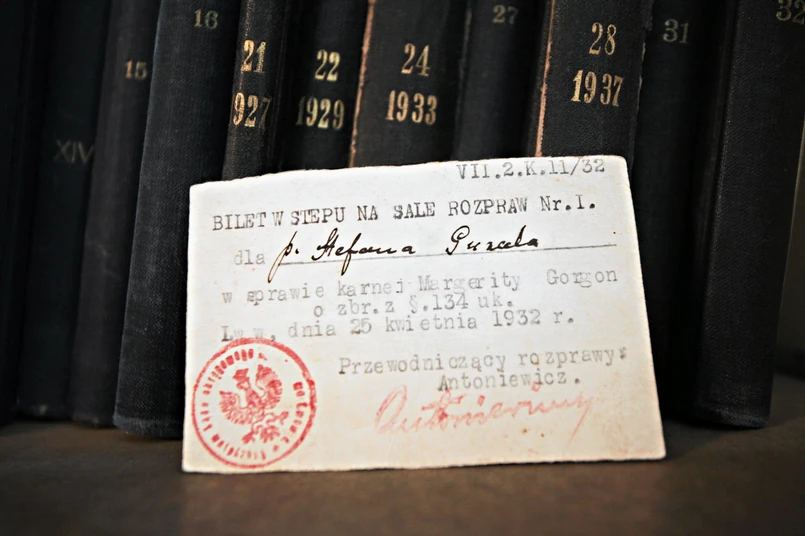 XIV
15
16
21
927
22
1929
24
1933
27
28
1937
31
32
VII.2.K.11/32
BILET W STEPU NA SALE ROZPRAW Nr.I.
dla p. Stefana
w sprawie karnej Margerity Gorgon
o zbr. z §.134 uk.
Lww. dnia 25 kwietnia 1932 r.
Przewodniczący rozprawy:
Antoniewicz.
Antoniewicz